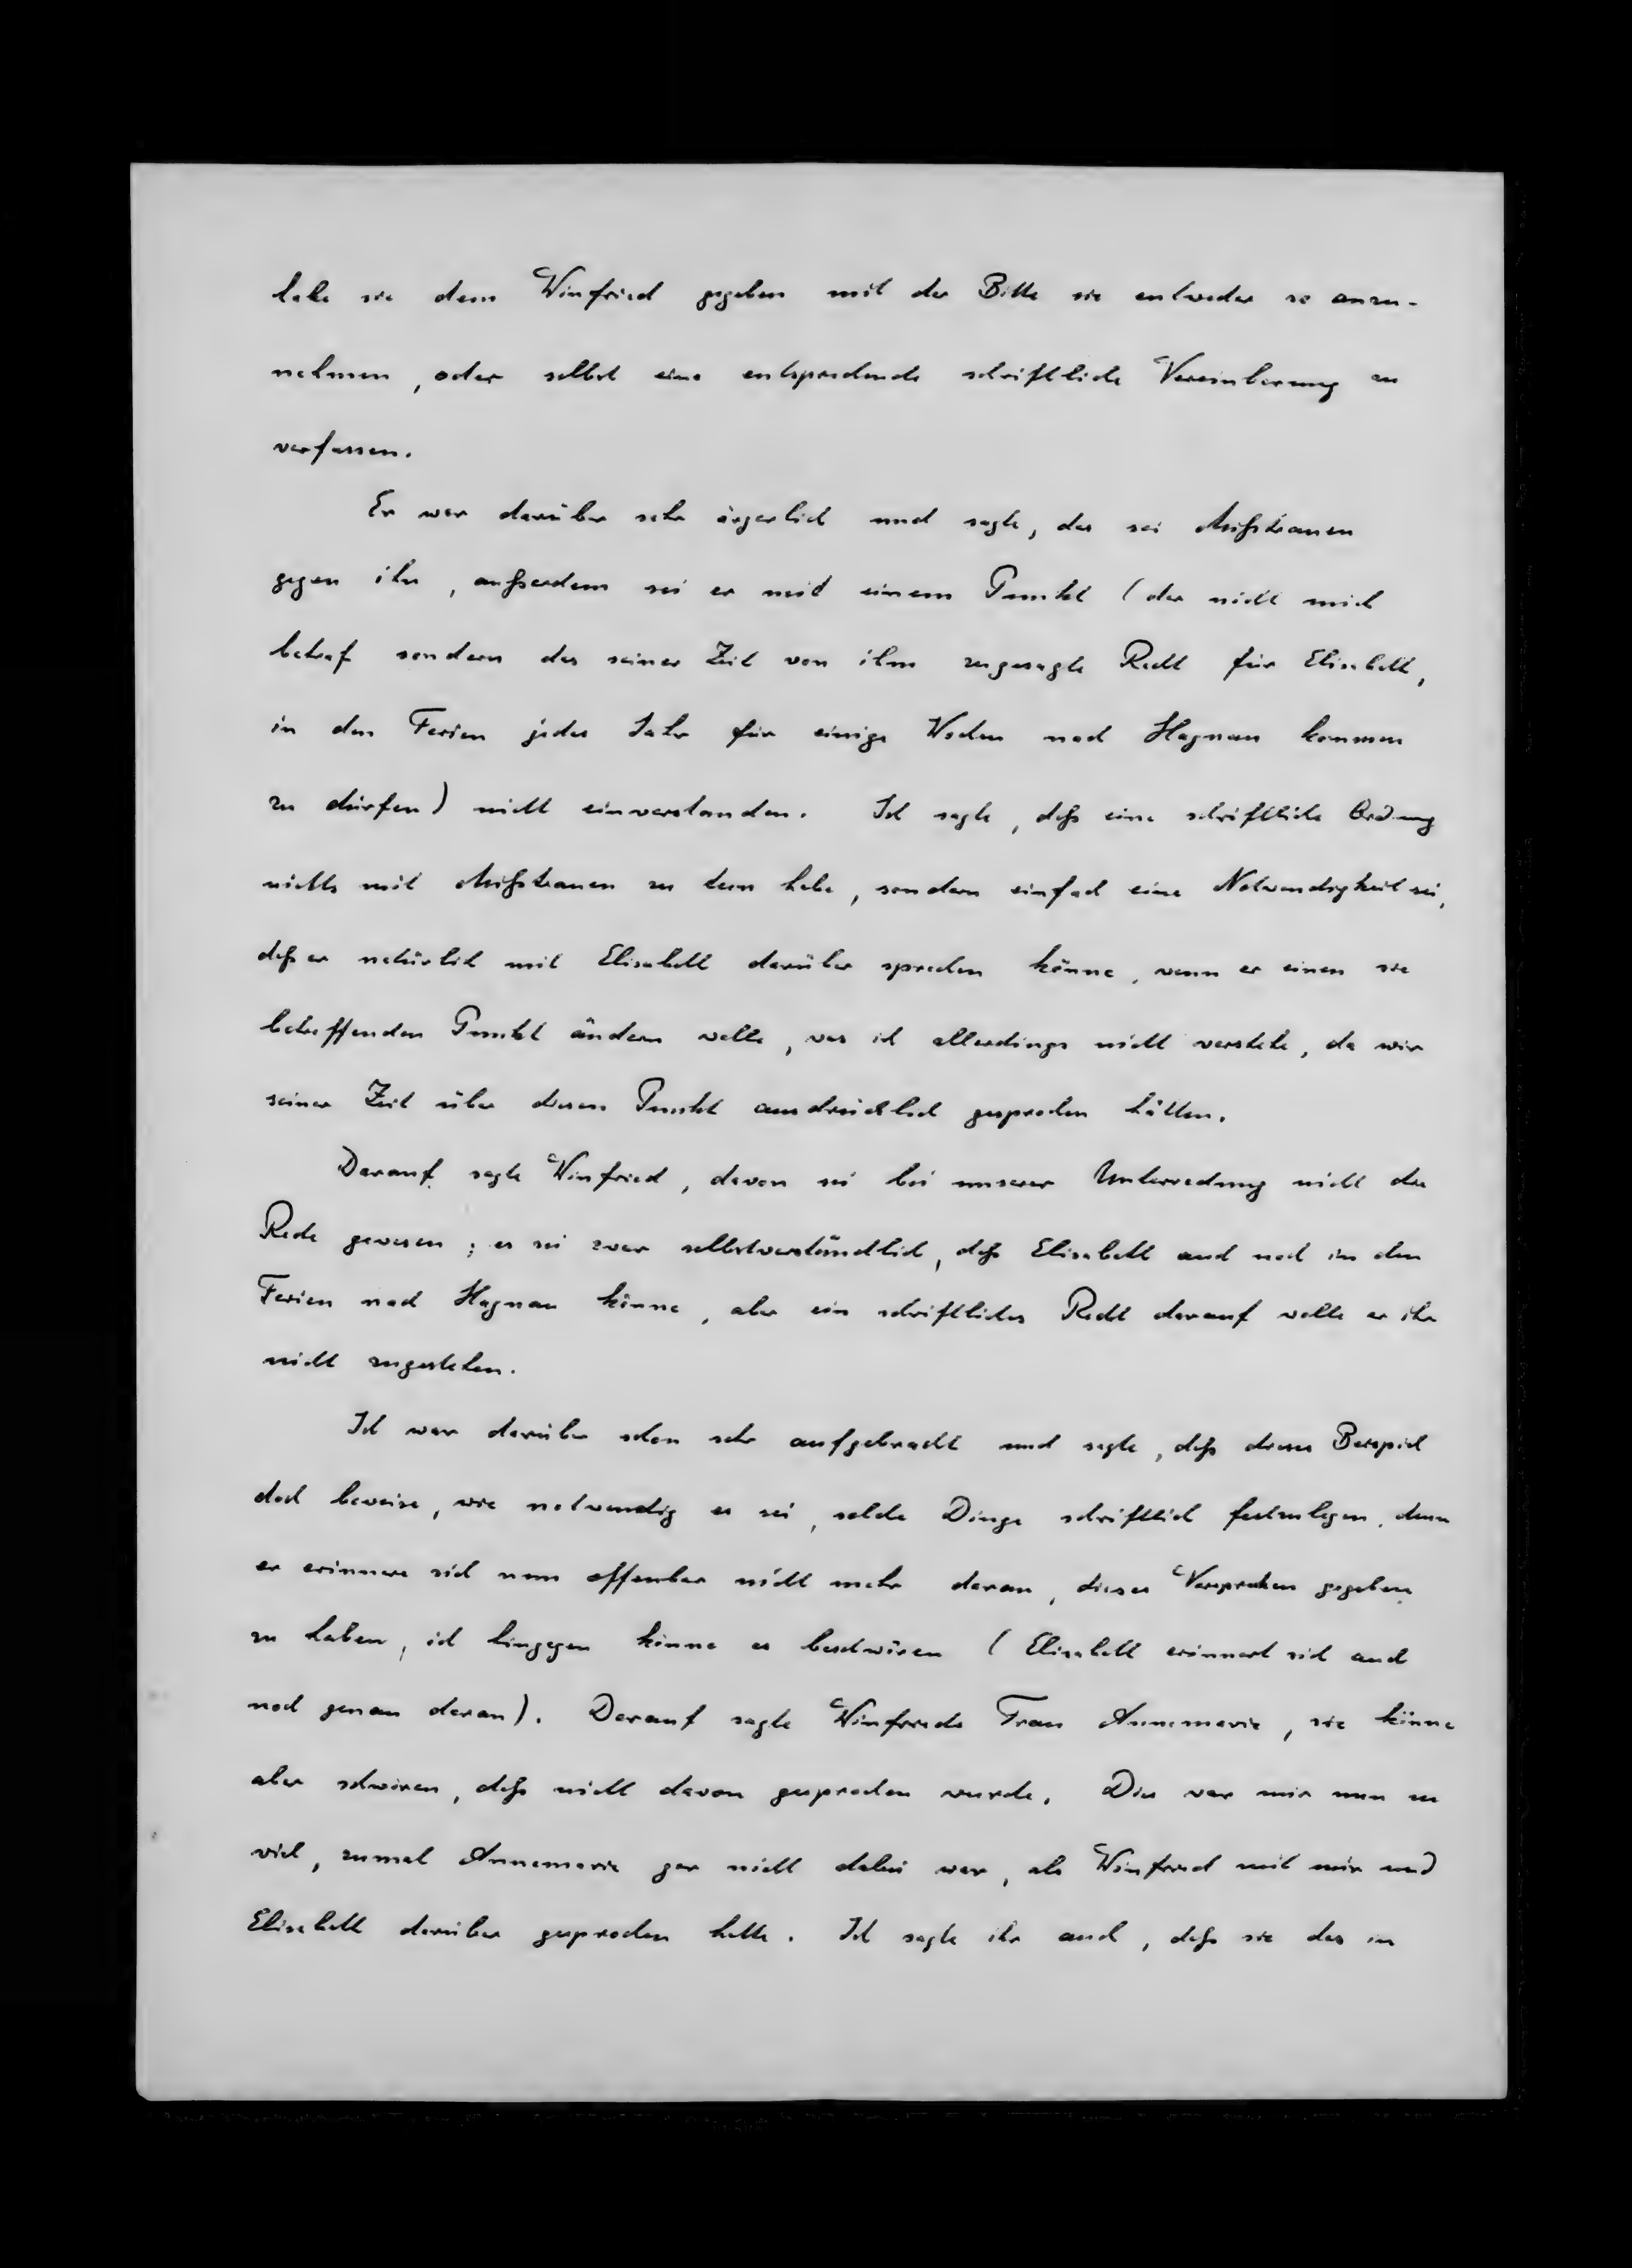 habe sie dem Winfried gegeben mit der Bitte sie entweder so anzu-
nehmen, oder selbst eine entsprechende schriftliche Vereinbarung zu
verfassen.
Er war darüber sehr ärgerlich und sagte, das sei Mißtrauen
gegen ihn, außerdem sei er mit einem Punkt (der nicht mich
betraf sondern das seiner Zeit von ihm zugesagte Recht für Elisabeth,
in den Ferien jedes Jahr für einige Wochen nach Hagnau kommen
zu dürfen) nicht einverstanden. Ich sagte, daß eine schriftliche Ordnung
nichts mit Mißtrauen zu tun habe, sondern einfach eine Notwendigkeit sei,
daß er natürlich mit Elisabeth darüber sprechen könne, wenn er einen sie
betreffenden Punkt ändern wolle, was ich allerdings nicht verstehe, da wir
seiner Zeit über diesen Punkt ausdrücklich gesprochen hätten.
Darauf sagte Winfried, davon sei bei unserer Unterredung nicht die
Rede gewesen; es sei zwar selbstverständlich, daß Elisabeth auch noch in den
Ferien nach Hagnau könne, aber ein schriftliches Recht darauf wolle er ihr
nicht zugestehen.
Ich war darüber schon sehr aufgebracht und sagte, daß dieses Beispiel
doch beweise, wie notwendig es sei, solche Dinge schriftlich festzulegen, denn
er erinnere sich nun offenbar nicht mehr daran, dieses Versprechen gegeben
zu haben, ich hingegen könne es beschwören (Elisabeth erinnert sich auch
noch genau daran). Darauf sagte Winfrieds Frau Annemarie, sie könne
aber schwören, daß nicht davon gesprochen wurde. Dies war mir nun zu
viel, zumal Annemarie gar nicht dabei war, als Winfried mit mir und
Elisabeth darüber gesprochen hatte. Ich sagte ihr auch, daß sie das ja